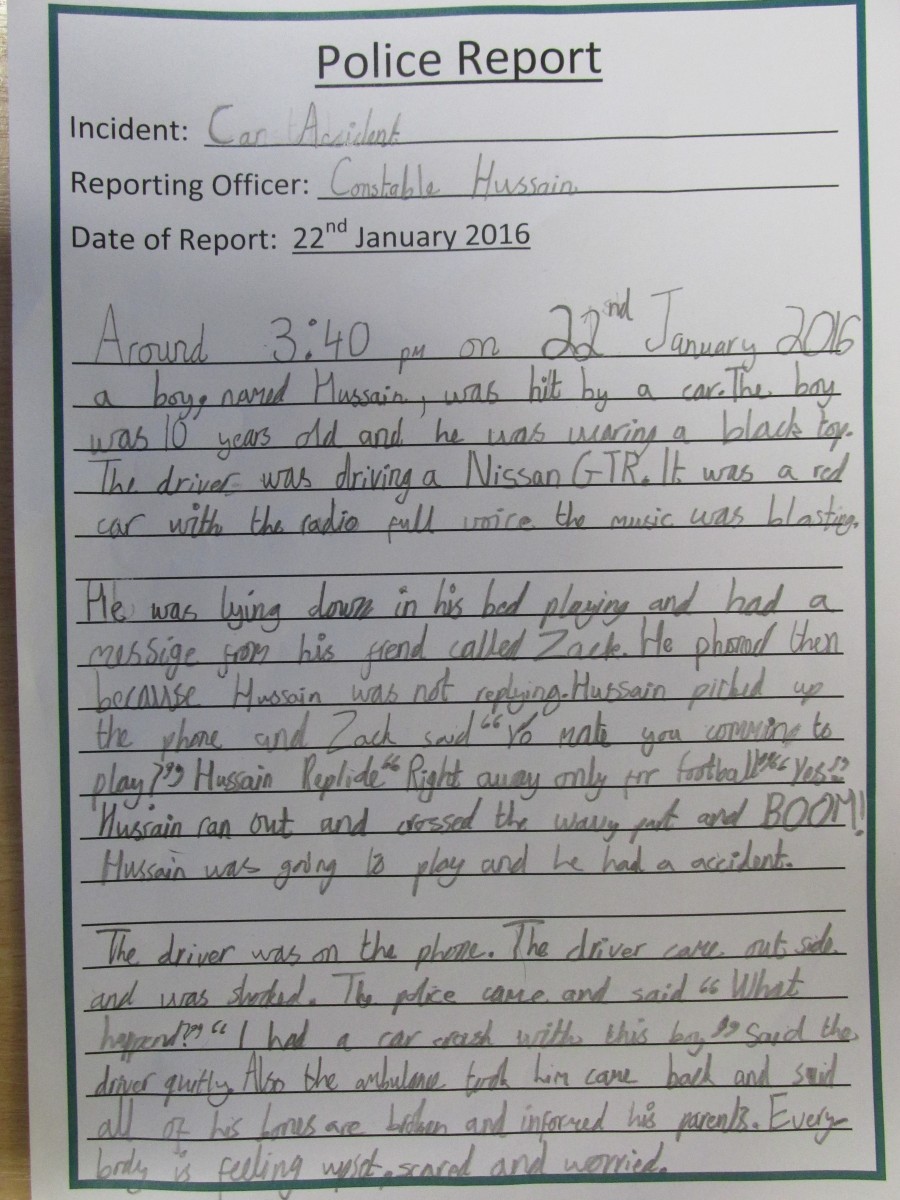 Police Report
Incident: Car Accident
Reporting Officer: Constable Hussain
Date of Report: 22nd January 2016
Around 3:40 pm on 22nd January 2016
a boy, named Hussain, was hit by a car. The boy
was 10 years old and he was wearing a black top.
The driver was driving a Nissan GTR. It was a red
car with the radio full voice the music was blasting.
He was lying down in his bed playing and had a
messige from his friend called Zack. He phoned then
because Hussain was not replying. Hussain picked up
the phone and Zack said “Yo mate you comming to
play?” Hussain Replide “Right away only for football” “Yes!”
Hussain ran out and crossed the wavy part and BOOM!
Hussain was going to play and he had a accident.
The driver was on the phone. The driver came out side
and was shocked. The police came and said “What
happend?” “I had a car crash with this boy” Said the
driver quitly. Also the ambulance took him came back and said
all of his bones are broken and informed his parents. Every-
body is feeling upset, scared and worried.